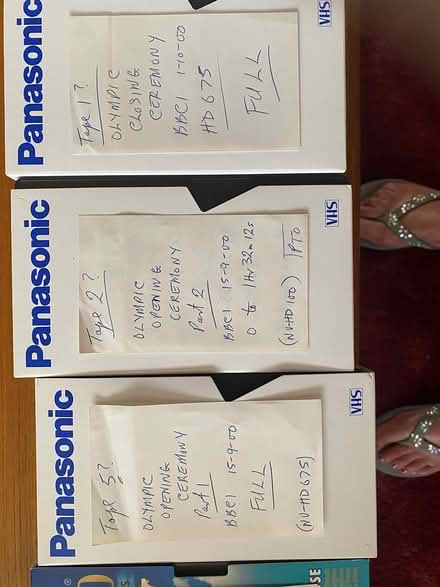 Panasonic
Tape 1?
OLYMPIC
CLOSING
CEREMONY
BBC1 1-10-00
HD675
FULL
VHS
Panasonic
Tape 2?
OLYMPIC
OPENING
CEREMONY
Part 2
BBC1 15-9-00
0 to 1Hr 32m 12s
(NV-HD100) PTO
VHS
Panasonic
Tape 5?
OLYMPIC
OPENING
CEREMONY
Part 1
BBC1 15-9-00
FULL
(NV-HD675)
VHS